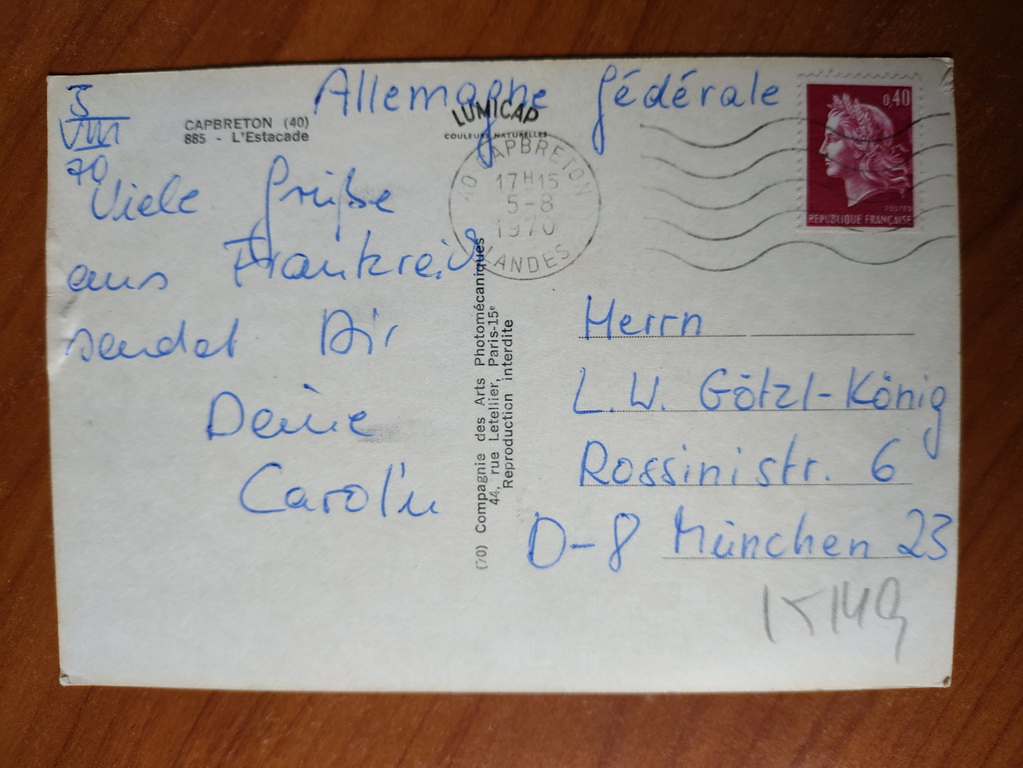 Allemagne fédérale
5
VIII
70
CAPBRETON (40)
885 - L'Estacade
LUMICAP
COULEURS NATURELLES
40 CAPBRETON
17H15
5-8
1970
LANDES
0,40
POSTES
REPUBLIQUE FRANÇAISE
Viele Grüße
aus Frankreich
sendet Dir
Deine
Carolin
(70) Compagnie des Arts Photomécaniques
44, rue Letellier, Paris-15e
Reproduction interdite
Herrn
L.W. Götzl-König
Rossinistr. 6
D-8 München 23